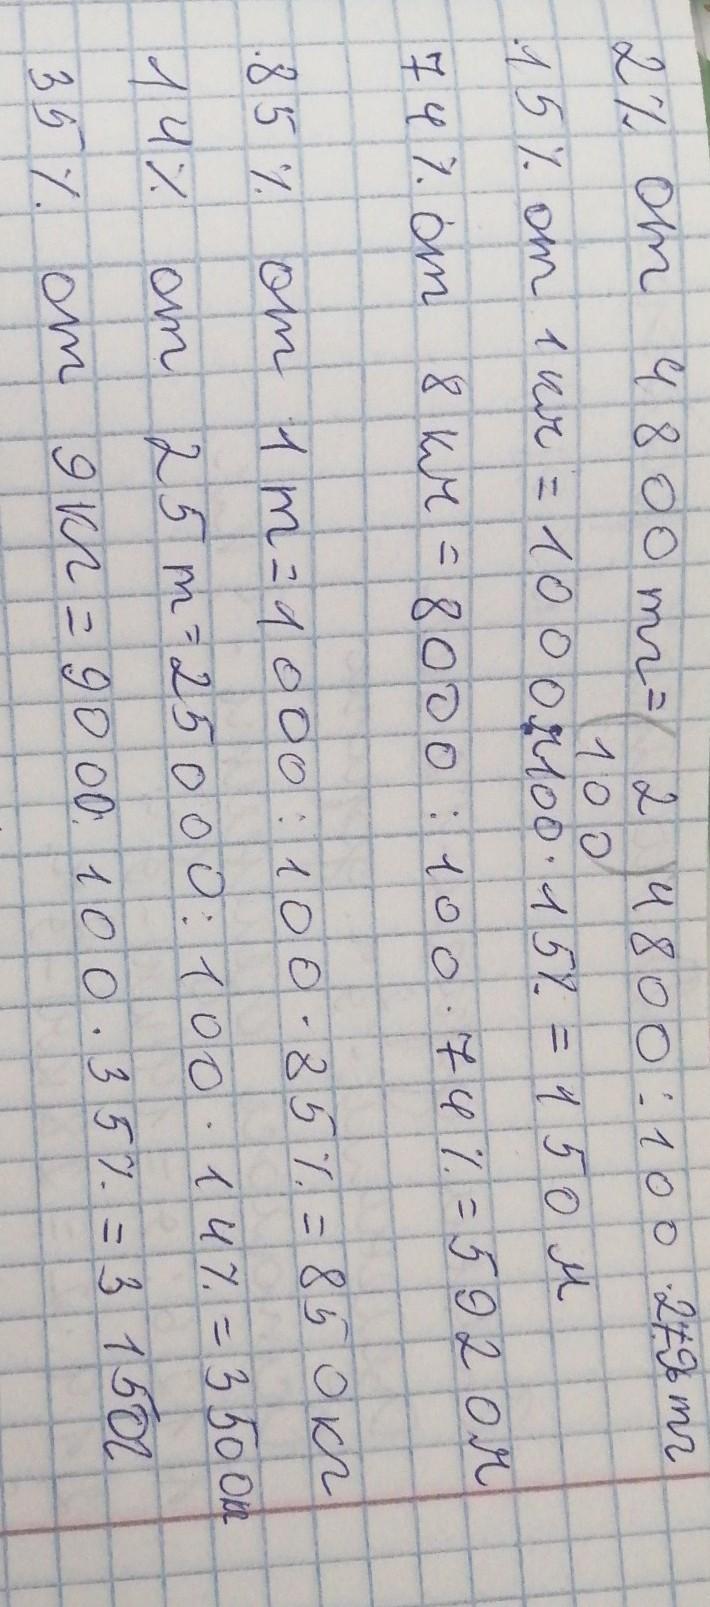 2% от 4800 тг = ( 2 ) 4800 : 100 · 2 = 96 тг
100
15% от 1 км = 1000 м : 100 · 15% = 150 м
74% от 8 км = 8000 : 100 · 74% = 5920 м
85% от 1 т = 1000 : 100 · 85% = 850 кг
14% от 25 т = 25000 : 100 · 14% = 3500 кг
35% от 9 кг = 9000 : 100 · 35% = 3150 г